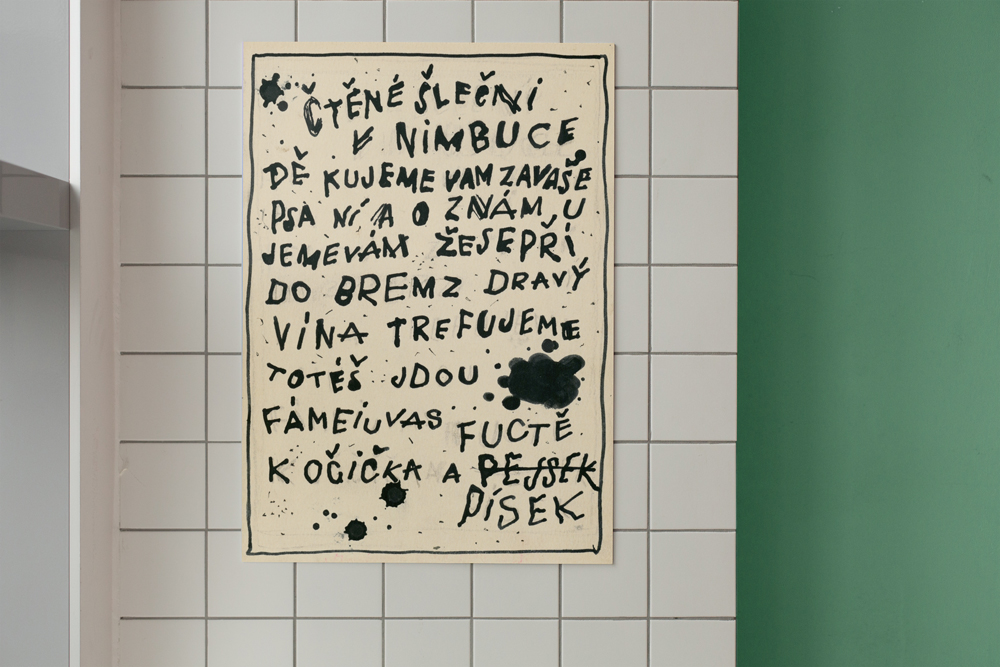 ČTĚNÉ ŠLEČNÍ
V NIMBUCE
DĚ KUJEME VAM ZAVAŠE
PSA NÍ A O ZNÁM,U
JEMEVÁM ŽESEPŘÍ
DO BREMZ DRAVÝ
VÍNA TREFUJEME
TOTÉŠ JDOU
FÁMEIUVAS FUCTĚ
K OČIČKA A PEJSEK
PÍSEK